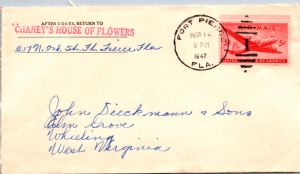 AFTER 5 DAYS, RETURN TO
"CHANEY'S HOUSE OF FLOWERS
St. Ft. Pierce, Fla
FORT PIERCE
MAR 14
1947
FLA.
AIR MAIL
5¢
John Dieckmann & Sons
Elm Grove
Wheeling
West Virginia